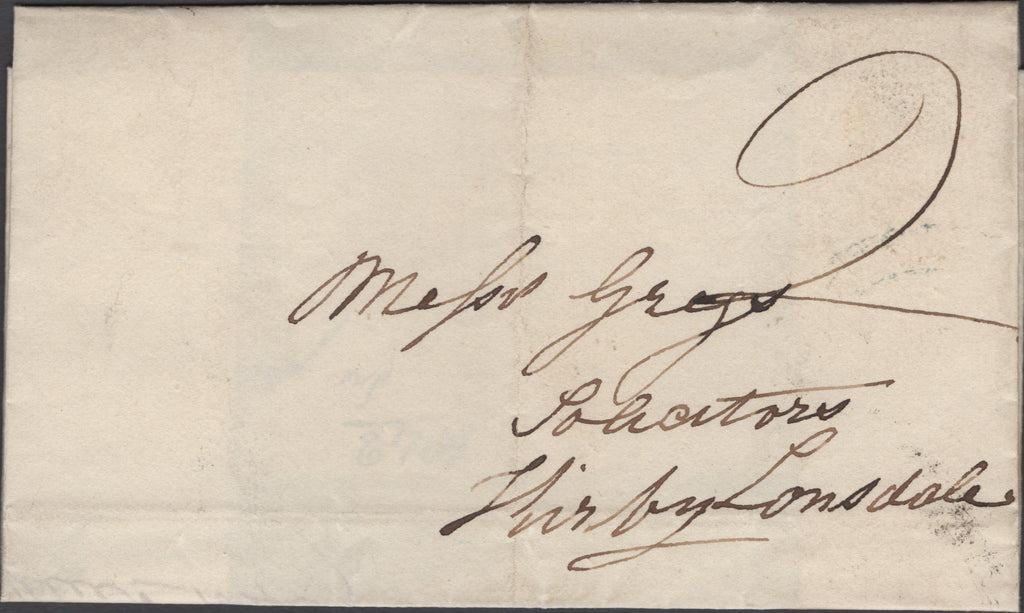 2
Messrs Gregs
Solicitors
Kirby Lonsdale